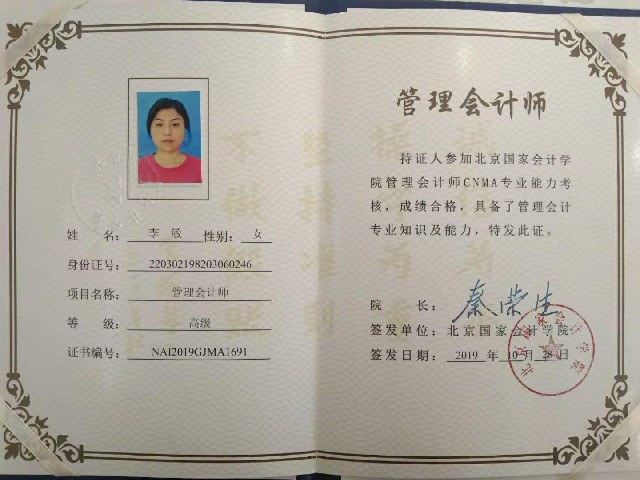 姓 名： 李 敏 性别： 女
身份证号： 220302198203060246
项目名称： 管理会计师
等 级： 高级
证书编号： NAI2019GJMA1691
管理会计师
持证人参加北京国家会计学
院管理会计师CNMA专业能力考
核，成绩合格，具备了管理会计
专业知识及能力，特发此证。
院 长： 秦荣生
签发单位：北京国家会计学院
签发日期： 2019 年 10 月 28 日
北京国家会计学院